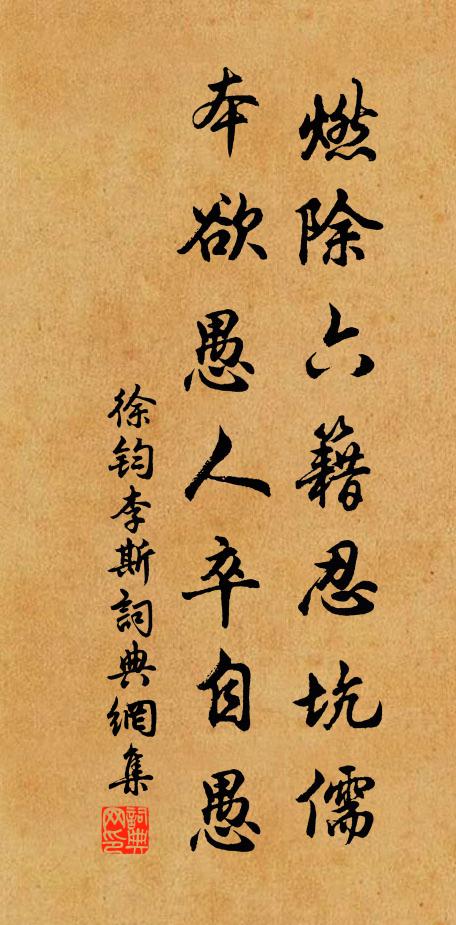 燃除六籍忍坑儒
本欲愚人卒自愚
徐钧李斯詞典網集
詞典
网印